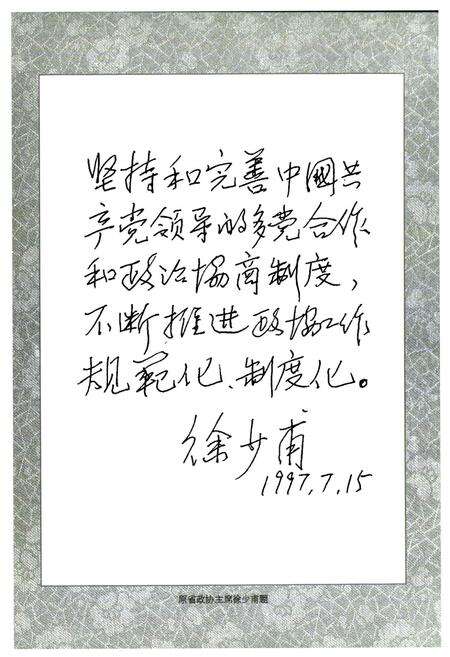 坚持和完善中國共
产党领导的多党合作
和政治協商制度，
不断推进政協工作
规范化、制度化。
徐少甫
1997.7.15
原省政协主席徐少甫题